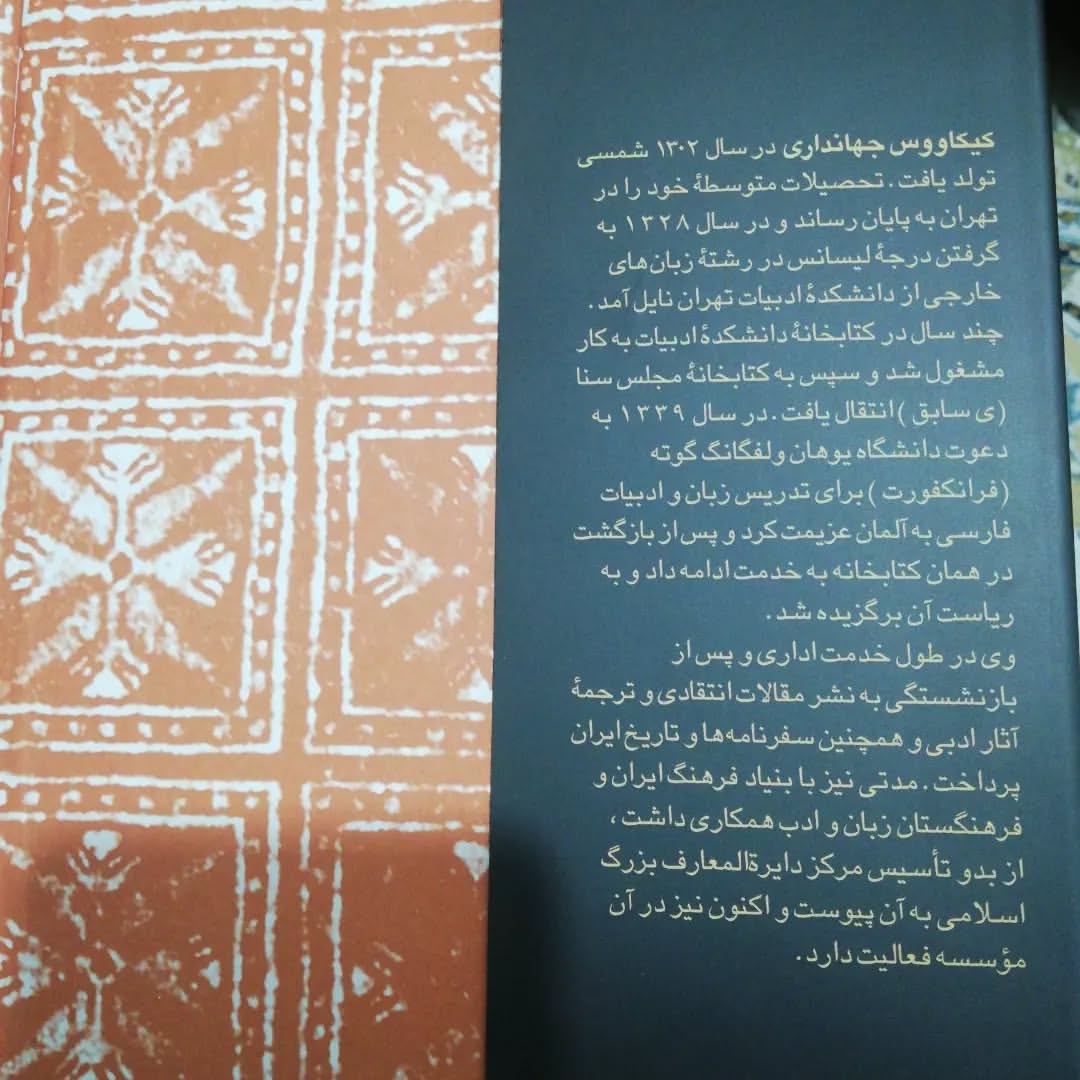 کیکاووس جهانداری در سال ۱۳۰۲ شمسی
تولد یافت. تحصیلات متوسطهٔ خود را در
تهران به پایان رساند و در سال ۱۳۲۸ به
گرفتن درجهٔ لیسانس در رشتهٔ زبان‌های
خارجی از دانشکدهٔ ادبیات تهران نایل آمد.
چند سال در کتابخانهٔ دانشکدهٔ ادبیات به کار
مشغول شد و سپس به کتابخانهٔ مجلس سنا
(ی سابق) انتقال یافت. در سال ۱۳۳۹ به
دعوت دانشگاه یوهان ولفگانگ گوته
(فرانکفورت) برای تدریس زبان و ادبیات
فارسی به آلمان عزیمت کرد و پس از بازگشت
در همان کتابخانه به خدمت ادامه داد و به
ریاست آن برگزیده شد.
وی در طول خدمت اداری و پس از
بازنشستگی به نشر مقالات انتقادی و ترجمهٔ
آثار ادبی و همچنین سفرنامه‌ها و تاریخ ایران
پرداخت. مدتی نیز با بنیاد فرهنگ ایران و
فرهنگستان زبان و ادب همکاری داشت،
از بدو تأسیس مرکز دایرةالمعارف بزرگ
اسلامی به آن پیوست و اکنون نیز در آن
مؤسسه فعالیت دارد.